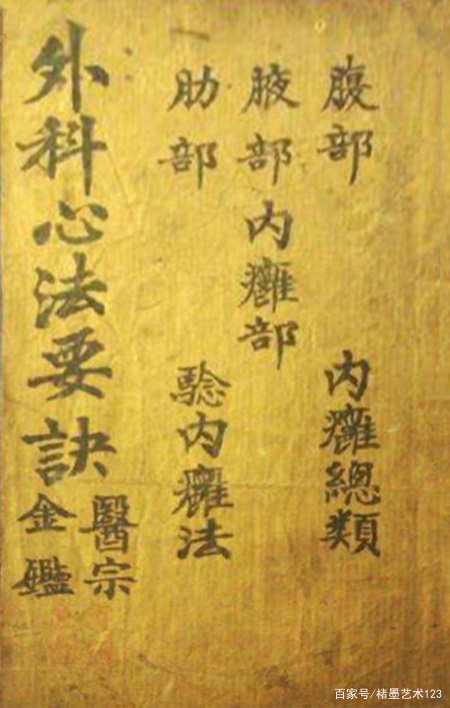 腹部 内癰總類
腋部 内癰部
肋部 騐内癰法
外科心法要訣
醫宗
金鑑
百家号/楮墨艺术123